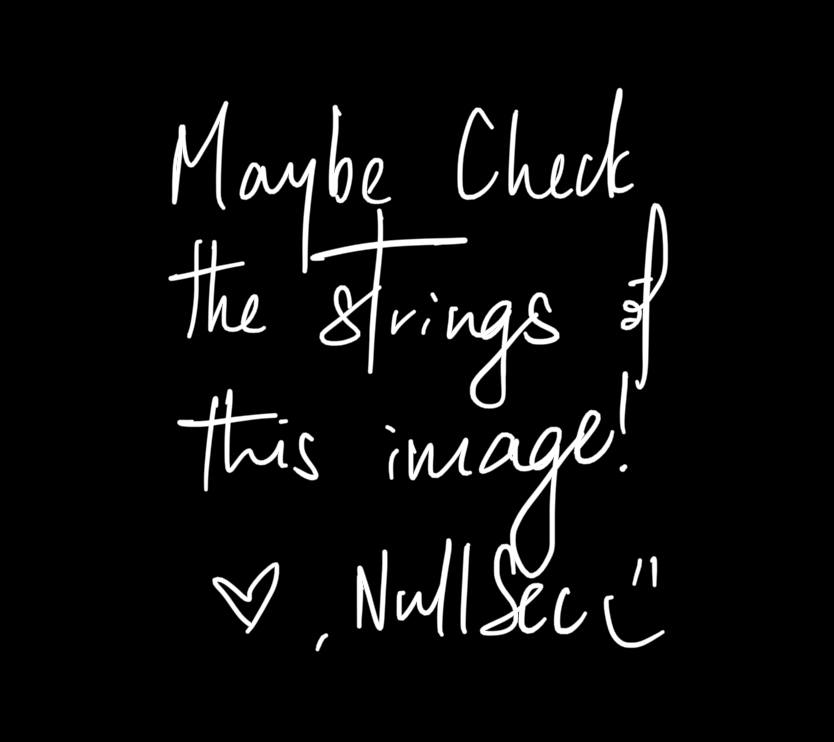 Maybe Check
the strings of
this image!
♡, NullSec